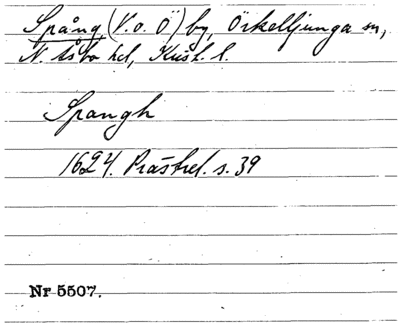 Spång (V. o. Ö) by, Örkelljunga sn,
N. Åsbo hd, Krist. l.
Spangh
1624. Prästrel. s. 39
Nr 5507.